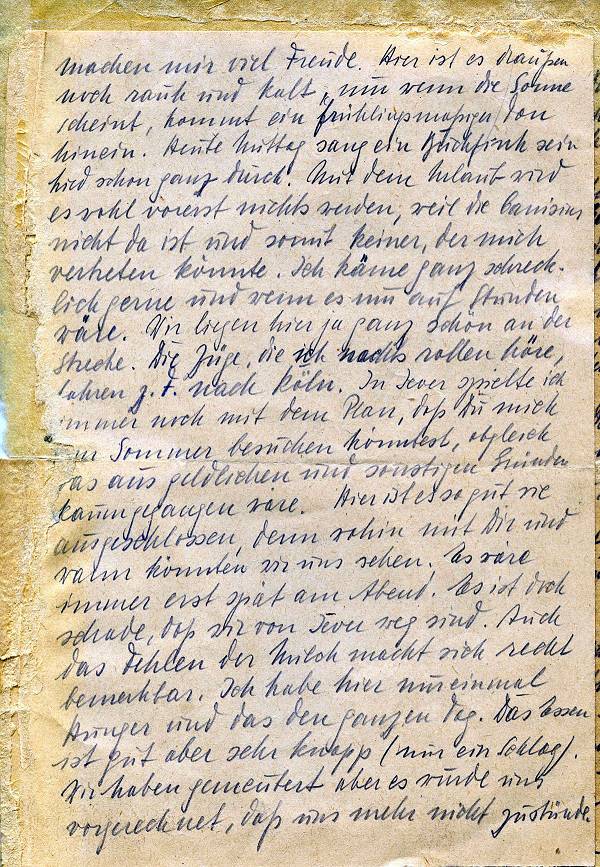 machen mir viel Freude. Hier ist es draußen
noch rauh und kalt, nur wenn die Sonne
scheint, kommt ein frühlingsmäßiger Ton
hinein. Heute Mittag sang ein Buchfink sein
Lied schon ganz durch. Mit dem Urlaub wird
es wohl vorerst nichts werden, weil die Canisius
nicht da ist und somit keiner, der mich
vertreten könnte. Ich käme ganz schreck-
lich gerne und wenn es nur auf Stunden
wäre. Wir liegen hier ja ganz schön an der
Strecke. Die Züge, die ich nachts rollen höre,
fahren z. T. nach Köln. In Jever spielte ich
immer noch mit dem Plan, daß Du mich
im Sommer besuchen könntest, obgleich
das aus geldlichen und sonstigen Gründen
kaum gegangen wäre. Hier ist es so gut wie
ausgeschlossen, denn wohin mit Dir und
wann könnten wir uns sehen. Es wäre
immer erst spät am Abend. Es ist doch
schade, daß wir von Jever weg sind. Auch
das Fehlen der Milch macht sich recht
bemerkbar. Ich habe hier nur einmal
Hunger und das den ganzen Tag. Das Essen
ist gut aber sehr knapp (nur ein Schlag).
Wir haben gemeutert aber es wurde uns
vorgerechnet, daß uns mehr nicht zustünde